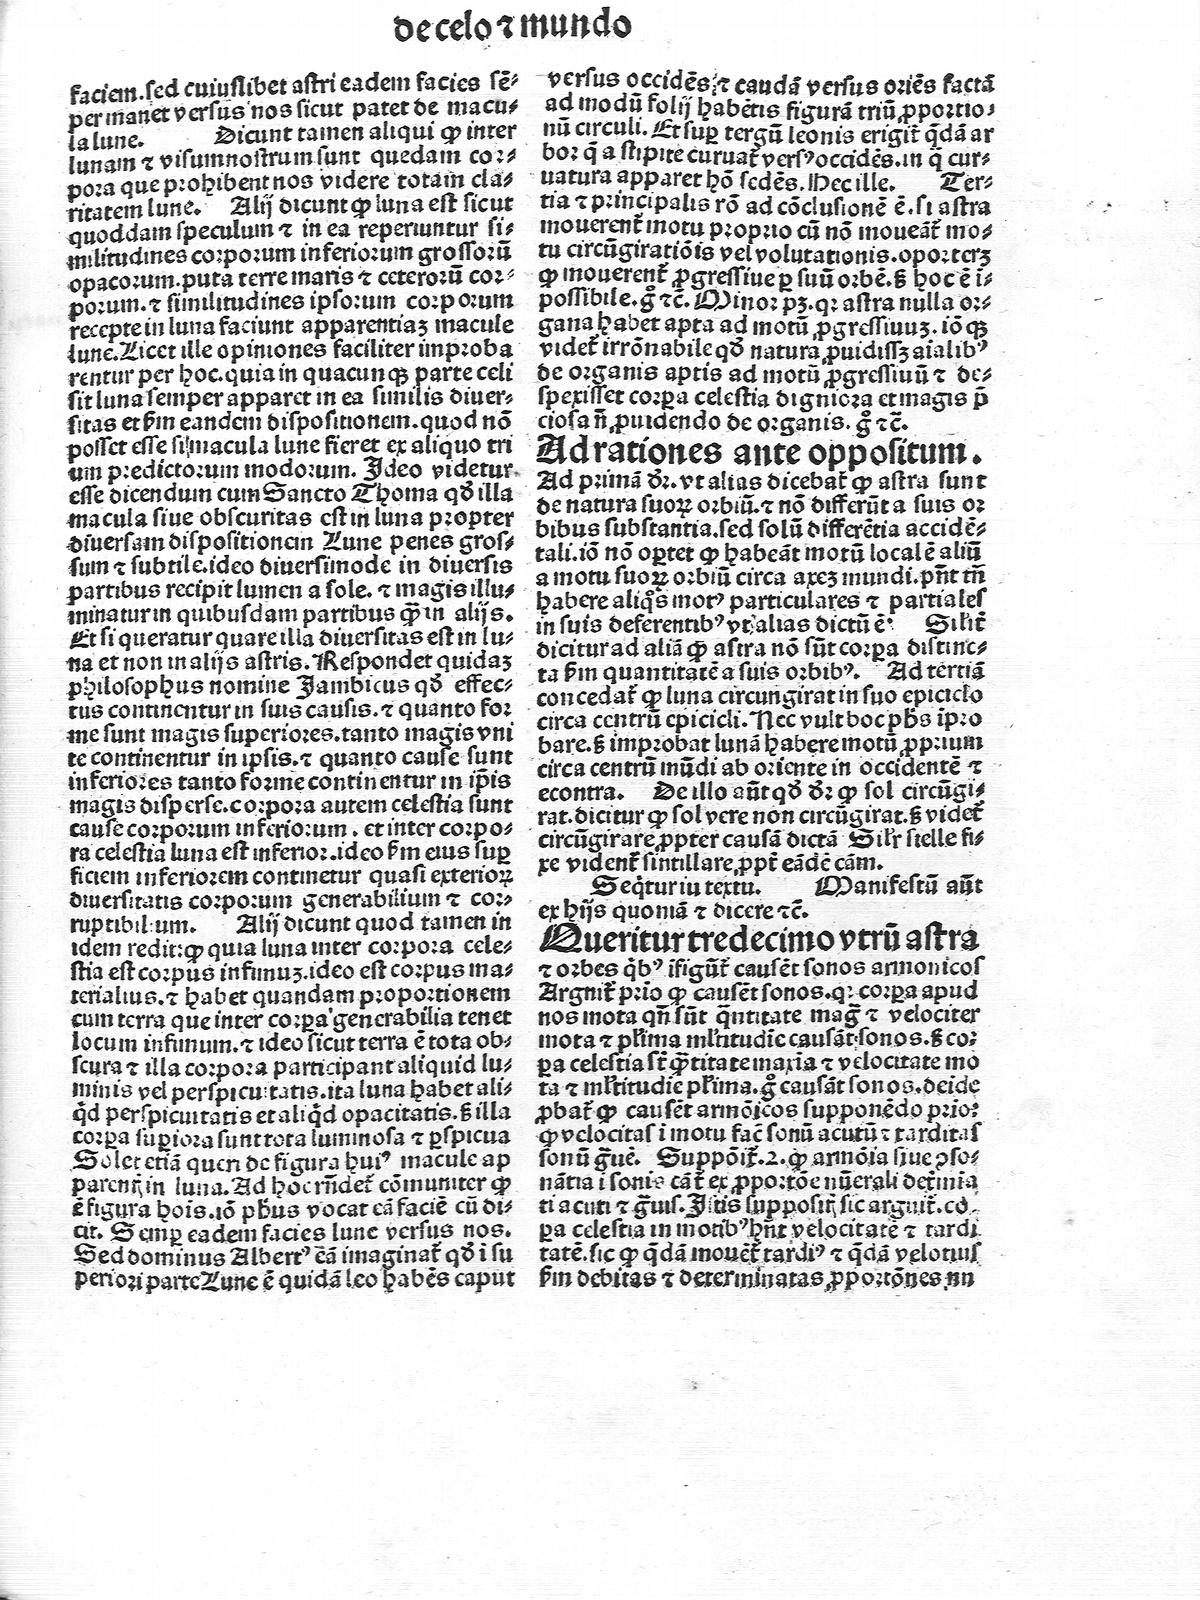 de celo ⁊ mundo
faciem.sed cuiuslibet astri eadem facies sē⸗
permanet versus nos sicut patet de macu⸗
la lune. Dicunt tamen aliqui ꝙ inter
lunam ⁊ visum nostrum sunt quedam cor⸗
pora que prohibent nos videre totam cla⸗
ritatem lune. Alij dicunt ꝙ luna est sicut
quoddam speculum ⁊ in ea reperiuntur si⸗
militudines corporum inferiorum grossorū
opacorum.puta terre maris ⁊ ceterorū cor⸗
porum.⁊ similitudines ipsorum corporum
recepte in luna faciunt apparentiaꝫ macule
lune.Licet ille opiniones faciliter improba
rentur per hoc.quia in quacunqꝫ parte celi
sit luna semper apparet in ea similis diuer⸗
sitas et ẜm eandem dispositionem.quod nō
posset esse si macula lune fieret ex aliquo tri
um predictorum modorum. Ideo videtur
esse dicendum cum Sancto Thoma qđ illa
macula siue obscuritas est in luna propter
diuersam dispositionem Lune penes gros⸗
sum ⁊ subtile.ideo diuersimode in diuersis
partibus recipit lumen a sole. ⁊ magis illu⸗
minatur in quibusdam partibus ꝙ̄ in alijs.
Et si queratur quare illa diuersitas est in lu⸗
na et non in alijs astris. Respondet quidaꝫ
philosophus nomine Jambicus qđ effec⸗
tus continentur in suis causis.⁊ quanto for
me sunt magis superiores.tanto magis vni
te continentur in ipsis.⁊ quanto cause sunt
inferiores tanto forme continentur in ip̄is
magis disperse.corpora autem celestia sunt
cause corporum inferiorum. et inter corpo⸗
ra celestia luna est inferior.ideo ẜm eius suꝑ
ficiem inferiorem continetur quasi exterioꝝ
diuersitatis corporum generabilium ⁊ cor⸗
ruptibilium. Alij dicunt quod tamen in
idem redit:ꝙ quia luna inter corpora cele⸗
stia est corpus infimuꝫ.ideo est corpus ma⸗
terialius.⁊ habet quandam proportionem
cum terra que inter corꝑa generabilia tenet
locum infimum.⁊ ideo sicut terra ē tota ob⸗
scura ⁊ illa corpora participant aliquid lu⸗
minis vel perspicuitatis.ita luna habet ali⸗
qd̄ perspicuitatis et aliqd̄ opacitatis.ꝭ illa
corꝑa suꝑiora sunt tota luminosa ⁊ ꝑspicua
Solet etiā queri de figura huiꝰ macule ap
parentꝭ in luna. Ad hoc rn̄det̄ cōmuniter ꝙ
ē figura hoīs.iō pħus vocat eā faciē cū di⸗
cit. Semꝑ eadem facies lune versus nos.
Sed dominus Albertꝰ ēā imaginat̄ qđ ī su
periori parte Lune ē quidā leo habēs caput
versus occidēs ⁊ caudā versus oriēs factā
ad modū folij habētis figurā triū ꝓportio⸗
nū circuli. Et suꝑ tergū leonis erigit̄ q̄dā ar
bor q̄ a stipite curuat̄ versꝰ occidēs.in q̄ cur⸗
uatura apparet hō sedēs. Hec ille. Ter⸗
tia ⁊ principalis rō ad cōclusionē ē.si astra
mouerent̄ motu proprio cū nō moueāt̄ mo⸗
tu circūgiratiōis vel volutationis.oporterꝫ
ꝙ mouerent̄ ꝓgressiue ꝑ suū orbē.ꝭ hoc ē i⸗
possibile.g̊ ⁊c̄. Minor pꝫ.qꝛ astra nulla or⸗
gana habet apta ad motū ꝓgressiuuꝫ. iō qꝫ
videt̄ irrōnabile qđ natura ꝓuidissꝫ aīalibꝰ
de organis aptis ad motū ꝓgressiuū ⁊ de⸗
spexisset corꝑa celestia digniora et magis p̄
ciosa n̄ ꝓuidendo de organis. g̊ ⁊c̄.
Ad rationes ante oppositum.
Ad primā dr̄. vt alias dicebat̄ ꝙ astra sunt
de natura suoꝝ orbiū.⁊ nō differūt a suis or
bibus substantia.sed solū differētia accidē⸗
tali.iō nō oꝑtet ꝙ habeāt motū localē aliū
a motu suoꝝ orbiū circa axeꝫ mundi.pn̄t tn̄
habere aliq̊s motꝰ particulares ⁊ partiales
in suis deferentibꝰ vt alias dictū ē. Silit̄
dicitur ad aliā ꝙ astra nō sūt corꝑa distinc⸗
ta ẜm quantitatē a suis orbibꝰ. Ad tertiā
concedat̄ ꝙ luna circungirat in suo epiciclo
circa centrū epicicli. Nec vult hoc pħs īpro
bare.ꝭ improbat lunā habere motū ꝓprium
circa centrū mūdi ab oriente in occidentē ⁊
econtra. De illo aūt qđ dr̄ ꝙ sol circūgi⸗
rat.dicitur ꝙ sol vere non circūgirat.ꝭ videt̄
circūgirare ꝓpter causā dictā Silr̄ stelle fi⸗
xe vident̄ sintillare ꝓpt̄ eādē cām.
Seq̄tur in textu. Manifestū aūt
ex hijs quoniā ⁊ dicere ⁊c̄.
Queritur tredecimo vtrū astra
⁊ orbes q̄bꝰ īfigūt̄ causēt sonos armonicos
Arguit̄ prio ꝙ causēt sonos.qꝛ corꝑa apud
nos mota qn̄ sūt q̄ntitate maḡ ⁊ velociter
mota ⁊ pl̄ima ml̄titudīe causāt sonos.ꝭ cor
ꝑa celestia sūt q̄ntitate maxīa ⁊ velocitate mo
ta ⁊ ml̄titudīe pl̄ima.g̊ causāt sonos.deīde
ꝓbat̄ ꝙ causēt armōicos supponēdo prio.
ꝙ velocitas ī motu fac̄ sonū acutū ⁊ tarditas
sonū g̊uē. Suppōit̄.2.ꝙ armōia siue ꝯso⸗
nātia ī sonis cāt̄ ex ꝓportōe nūerali det̄mīa
ti acuti ⁊ g̊uis. Istis suppositꝭ sic arguit̄.cor
ꝑa celestia in motibꝰ hn̄t velocitatē ⁊ tardi
tatē.sic ꝙ q̄dā mouēt̄ tardiꝰ ⁊ q̄dā velotius
ẜm debitas ⁊ determinatas ꝓportōnes